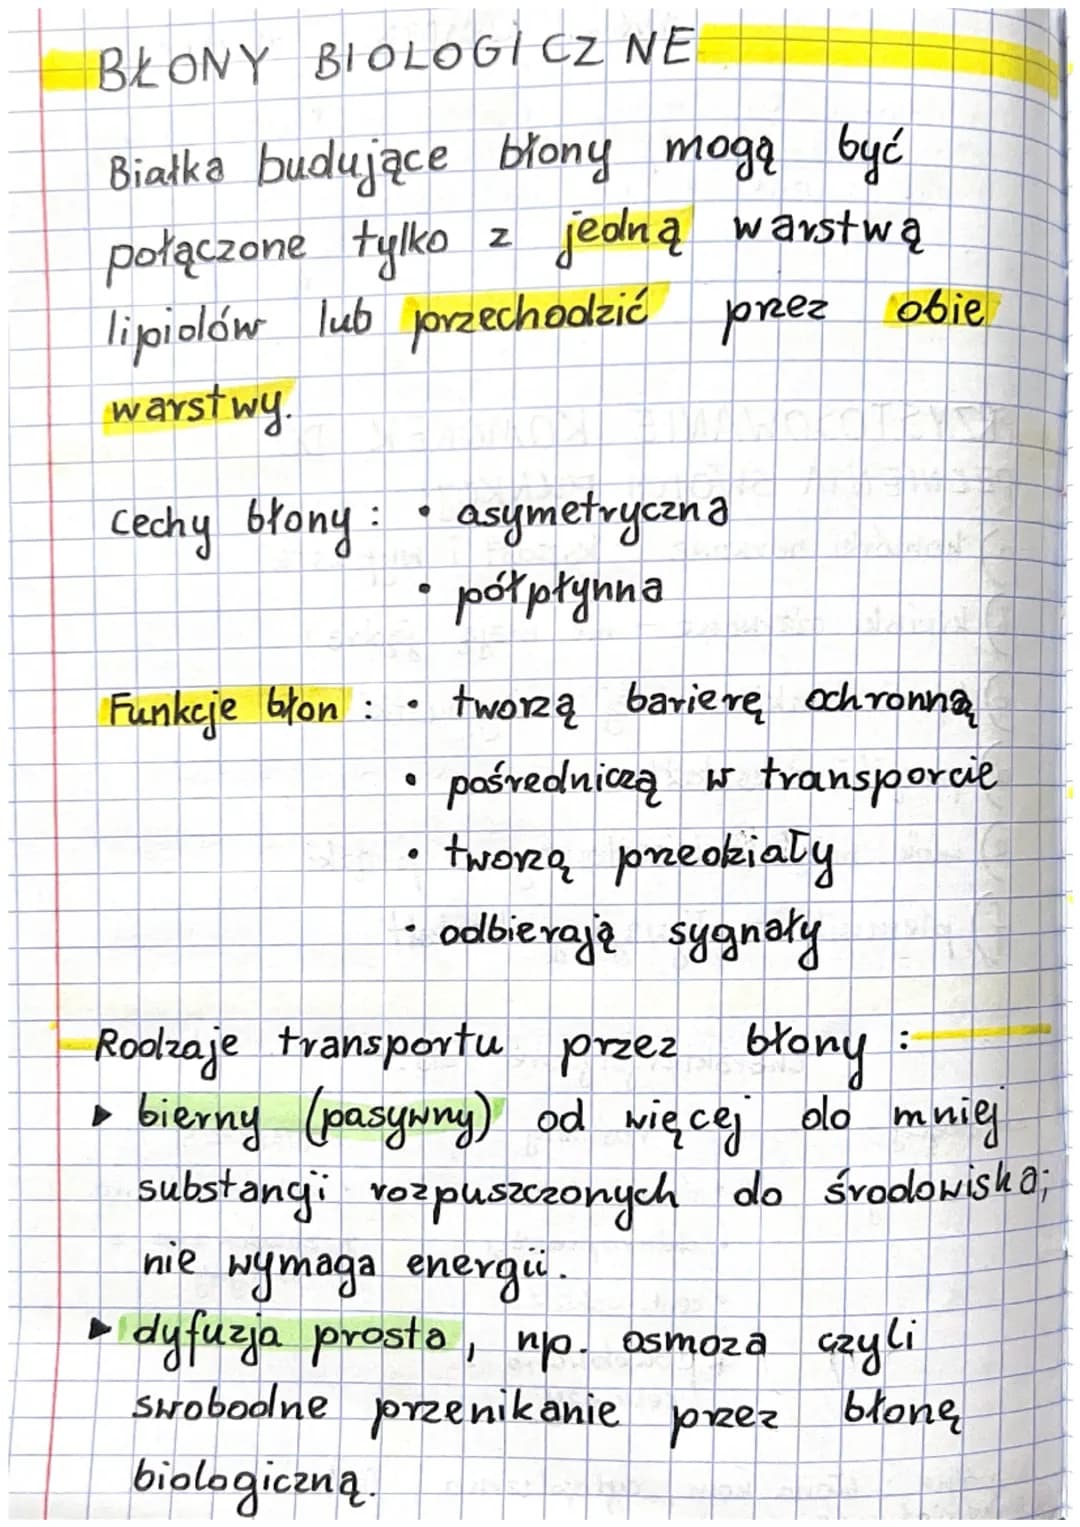 BŁONY BIOLOGICZNE
Białka budujące błony mogą być
połączone tylko z jedną warstwą
lipidów lub przechodzić przez obie
warstwy.
Cechy błony: • asymetryczna
• półpłynna
Funkcje błon: • tworzą barierę ochronną
• pośredniczą w transporcie
• tworzą przedziały
• odbierają sygnały
Rodzaje transportu przez błony:
▸ bierny (pasywny) od więcej do mniej
substancji rozpuszczonych do środowiska;
nie wymaga energii.
▸ dyfuzja prosta, np. osmoza czyli
swobodne przenikanie przez błonę
biologiczną.